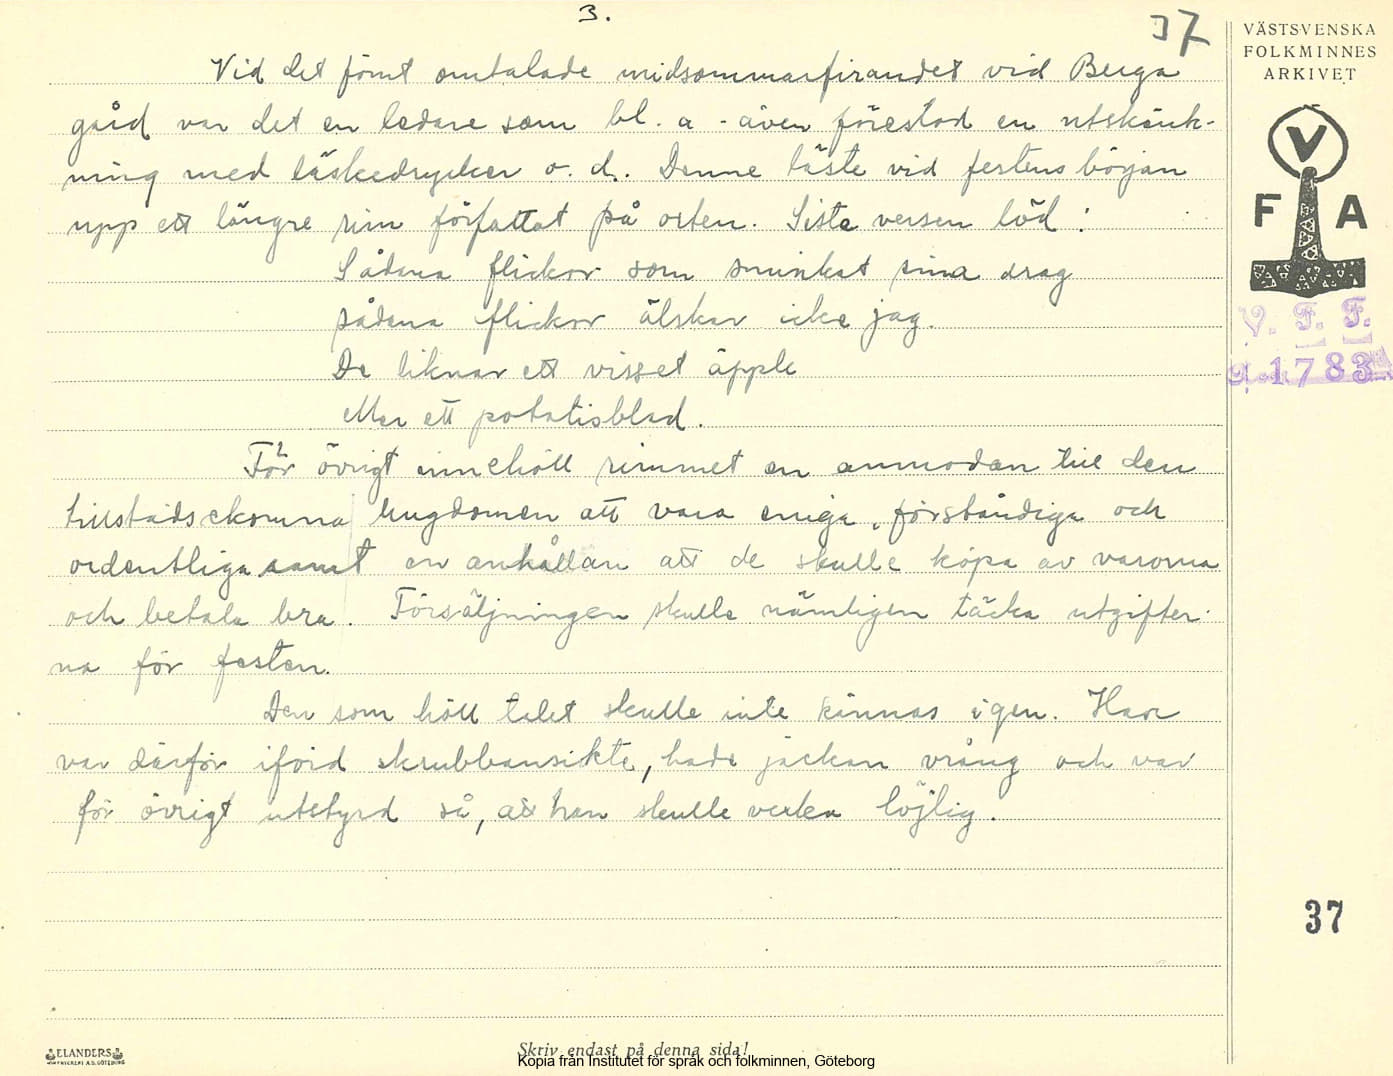 3.
37
Vid det förut omtalade midsommarfirandet vid Berga
gård var det en ledare som bl. a - även förestod en utskänk-
ning med läskedrycker o. d.. Denne läste vid festens början
upp ett längre rim författat på orten. Sista versen löd :
Sådana flickor som sminkat sina drag
sådana flickor älskar icke jag.
De liknar ett visset äpple
eller ett potatisblad.
För övrigt innehöll rimmet en anmodan till den
tillstädeskomna ungdomen att vara eniga, förståndiga och
ordentliga samt en anhållan att de skulle köpa av varorna
och betala bra. Försäljningen skulle nämligen täcka utgifter-
na för festen.
Den som höll talet skulle inte kännas igen. Han
var därför iförd skrubbansikte, hade jackan vrång och var
för övrigt utstyrd så, att han skulle verka löjlig.
VÄSTSVENSKA
FOLKMINNES
ARKIVET
V
F A
V. F. F.
1783
37
ELANDERS
Skriv endast på denna sida!
Kopia från Institutet för språk och folkminnen, Göteborg